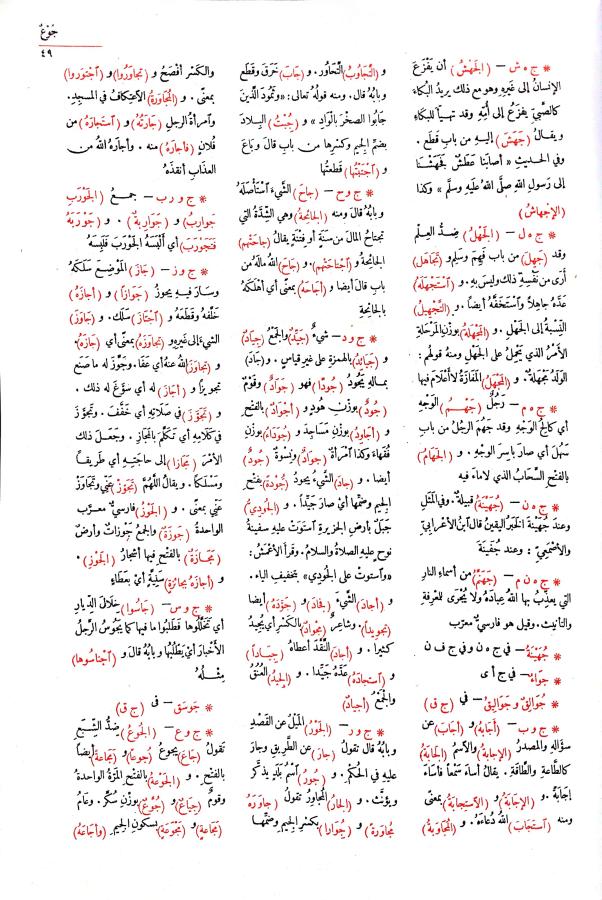 جُوْعٌ
٤٩
* ج ه ش — (الجَهْشُ) أن يَفْزَعَ
الإنسانُ إلى غَيْرِهِ وهو مع ذلك يريدُ البُكاءَ
كالصَّبيِّ يَفزَعُ إلى أُمِّهِ وقد تهيــأَ للبكاءِ
ويقالُ (جَهَشَ) إليه من بابِ قَطَع .
وفي الحديثِ « أصابَنَا عَطَشٌ فَجَهَشْنَا
إلى رَسولِ اللهِ صلَّى اللهُ عليه وسلَّم » وكذا
(الإجْهاشُ)
* ج ه ل — (الجَهْلُ) ضِدُّ العِلْمِ
وقد (جَهِلَ) من باب فَهِمَ وسَلِمَ و(تَجاهَل)
أَرَى من نَفْسِه ذلك وليسَ بِه . و (اسْتَجْهَلَهُ)
عَدَّه جاهِلاً واسْتَخَفَّه أيضاً . و (التَّجْهِيلُ)
النِّسبَةُ إلى الجَهْلِ . و(المَجْهَلَةُ) بوزْنِ المَرْحَلَةِ
الأمْرُ الذي يَحْمِلُ على الجَهْلِ ومنهُ قولهُم :
الوَلَدُ مَجْهَلَةٌ . و (المَجْهَلُ) المَفَازَةُ لا أعلامَ فيها
* ج ه م — رَجُلٌ (جَهْـــمُ) الوَجْهِ
أي كالِحُ الوَجْهِ وقد جَهُمَ الرَّجُلُ من بابِ
سَهُلَ أي صارَ باسِرَ الوجْهِ . و (الجَهَامُ)
بالفتحِ السَّحابُ الذي لا ماءَ فيه
* ج ه ن — (جُهَيْنَةُ) قبيلَةٌ . وفي المَثَلِ
وعند جُهَينَةَ الخَبَرُ اليقينُ قال ابنُ الأعْرابيِّ
والأَصْمَعِيّ : وعند جُفَينَةَ
* ج ه ن م — (جَهَنَّمُ) من أسماءِ النارِ
التي يعذِّبُ بها اللهُ عِبادَهُ ولا يُجْرَى للمَعْرِفَةِ
والتأنيثِ . وقيل هو فارِسِيٌّ معرّب
* جُهَيْنَةُ — في ج ه ن وفي ج ف ن
* جَوَاءٌ — في ج أ ى
* جُوَالِقٌ وجَوالِيقُ — في (ج ق)
* ج و ب — (أجابَهُ) و (أجَابَ) عن
سؤَالِه والمصدرُ (الإجابَةُ) والاسمُ (الجابَةُ)
كالطَّاعَةِ والطَّاقةِ . يقالُ أساءَ سَمْعاً فأساءَ
إجَابَةً . و (الإجَابَةُ) و (الاستِجابَةُ) بمعنًى
ومنه (اسْتَجابَ) اللهُ دُعاءَهُ . و (المُجَاوَبَةُ)
و (التَّجَاوُبُ) التَّحَاوُر . و (جَابَ) خَرَقَ وقَطَع
وبابُهُ قال . ومنه قولُهُ تعالى : « وثَمُودَ الَّذينَ
جَابُوا الصَّخْرَ بالْوَادِ » و (جُبْتُ) البِــلادَ
بضمِّ الجيمِ وكسرِها من بابِ قالَ وباعَ
و (اجْتَبْتُها) قَطَعتُها
* ج و ح — (جاحَ) الشَّيءَ اسْتَأْصَلَهُ
وبابُهُ قالَ ومنه (الجائحَةُ) وهي الشِّدَّةُ التي
تجتاحُ المالَ من سَنَةٍ أو فِتْنَةٍ يقالُ (جاحَتْهم)
الجائِحةُ و (اجْتاحَتْهم) . و (جَاحَ) اللهُ مالَهُ من
بابِ قال أيضا و (أجاحَهُ) بمعنًى أي أهْلَكَهُ
بالجائحةِ
* ج و د — شيءٌ (جَيِّدٌ) والجمعُ (جِيادٌ)
و (جَيائِدُ) بالهمزةِ على غيرِ قياسٍ . و (جَادَ)
بمـالِهِ يَجُودُ (جُودًا) فهو (جَوَادٌ) وقومٌ
(جُودٌ) بوزْنِ هُودٍ و (أجْوَادٌ) بالفتح
و (أجَاوِدُ) بوزنِ مَسَاجِدَ و (جُوَدَاءُ) بوزنِ
فُقَهَاءَ وكذا امْرَأةٌ (جَوادٌ) ونِسْوةٌ (جُودٌ)
أيضا . و (جادَ) الشيءُ يجودُ (جُودَةً) بفتح
الجيمِ وضمِّها أيْ صارَ جَيِّداً . و (الجُودِيُّ)
جَبَلٌ بأرضِ الجزيرةِ استوَتْ عليهِ سفينةُ
نوحٍ عليهِ الصلاةُ والسلامُ . وقرأَ الأعْمَشُ :
«واستوتْ على الجُودِي» بتخفيفِ الياءِ .
و (أجادَ) الشَّيءَ (فَجَادَ) و (جَوَّدَهُ) أيضا
(تَجْوِيداً) . وشاعِرٌ (مِجْوادٌ) بالكَسْرِ أي يُجِيدُ
كثيرا . و (أجَادَ) النَّقْدَ أعطاهُ (جِيَــاداً)
و (اسْتَجادَهُ) عَدَّهُ جَيِّدًا . و (الجِيدُ) العُنُقُ
والجَمْعُ (أجيادٌ)
* ج و ر — (الجَوْرُ) المَيْلُ عن القَصْدِ
وبابُهُ قال تقولُ (جارَ) عن الطَّرِيقِ وجارَ
عليهِ في الحُكْمِ . و (جُورُ) اسْمُ بَلَدٍ يذكَّر
ويؤنَّث . و (الجارُ) المُجَاوِرُ تقولُ (جاوَرَهُ
مُجَاوَرَةً) و (جُِوَارا) بكسرِ الجِيمِ وضَمِّها
والكسر أفْصَحُ و (تجاوَرُوا) و (اجْتَوَرُوا)
بمعنًى . و (المُجَاوَرَةُ) الاعتِكافُ في المسجِدِ .
وامْرأةُ الرجلِ (جارَتُهُ) و (اسْتَجارَهُ) من
فُلانٍ (فأجارَهُ) منه . وأجارَهُ اللهُ من
العذابِ أنقذَهُ
* ج و ر ب — جمــع (الجَوْرَبِ
جَوارِبُ) و (جَوارِبةٌ) . و (جَوْرَبَهُ
فَتَجَوْرَبَ) أي ألبَسَهُ الجَوْرَبَ فَلَبِسَهُ
* ج و ز — (جَازَ) المَوْضِعَ سَلَكَهُ
وسَارَ فيــه يجوزُ (جَوَازًا) و (أجازَهُ)
خَلَّفَهُ وقَطَعَهُ و (اجْتَازَ) سَلَكَ . و (جَاوَزَ)
الشيءَ إلى غيرِهِ و (تجاوَزَهُ) بمعنًى أي (جازَهُ) .
و (تجاوَزَ) اللهُ عنهُ أي عَفَا . وجَوَّزَ له ما صَنَع
تجويزاً و (أجَازَ) له أي سوَّغَ له ذلك .
و (تَجَوَّزَ) في صَلاتِه أي خَفَّفَ . وتَجَوَّزَ
في كلامِهِ أي تكلَّمَ بالمَجَازِ . وجَعَلَ ذلك
الأمرَ (مَجَازا) إلى حاجَتِهِ أي طَرِيقًا
ومَسْلَكا . ويقالُ اللَّهُمَّ (تَجَوَّزْ) عَنِّي وتَجَاوَزْ
عَنِّي بمعنًى . و (الجَوْزُ) فارسيٌّ معــرّب
الواحدةُ (جَوْزَةٌ) والجمعُ جَوْزاتٌ وأرضٌ
(مَجَــازَةٌ) بالفتْحِ فيها أشجارُ (الجَوْزِ) .
و (أجازَهُ بجائِزَةٍ) سَنِيَّةٍ أيْ بعَطَاءٍ
* ج و س — (جَاسُوا) خِلَالَ الدِّيارِ
أي تَخَلَّلُوها فطَلَبُوا ما فيها كما يَجُوسُ الرَّجُلُ
الأخْبارَ أي يَطْلُبُها وبابُهُ قالَ و (اجْتَاسُوها)
مِثــلُـهُ
* جَوْسَق — في (ج ق)
* ج و ع — (الجُوعُ) ضِدُّ الشِّــبَعِ
تقولُ (جَاعَ) يجوعُ (جُوعاً) و (مَجَاعَةً) أيضاً
بالفتحِ . و (الجَوْعَةُ) بالفتحِ المَرَّةُ الواحدة
وقومٌ (جِيَاعٌ) و (جُوَّعٌ) بوزنِ سُكَّرٍ . وعَامُ
(مَجَاعَةٍ) و (مَجْوَعَةٍ) بسكونِ الجيمِ (وأجَاعَهُ)